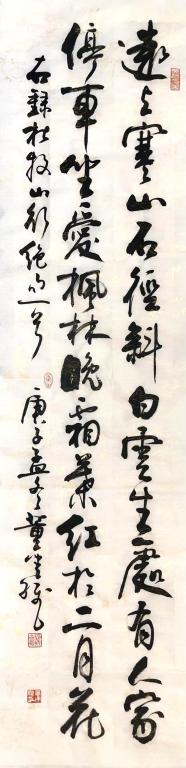 遠上寒山石徑斜白雲生處有人家
停車坐愛楓林晚霜葉紅於二月花
右錄杜牧山行絕句一首
庚子孟冬董